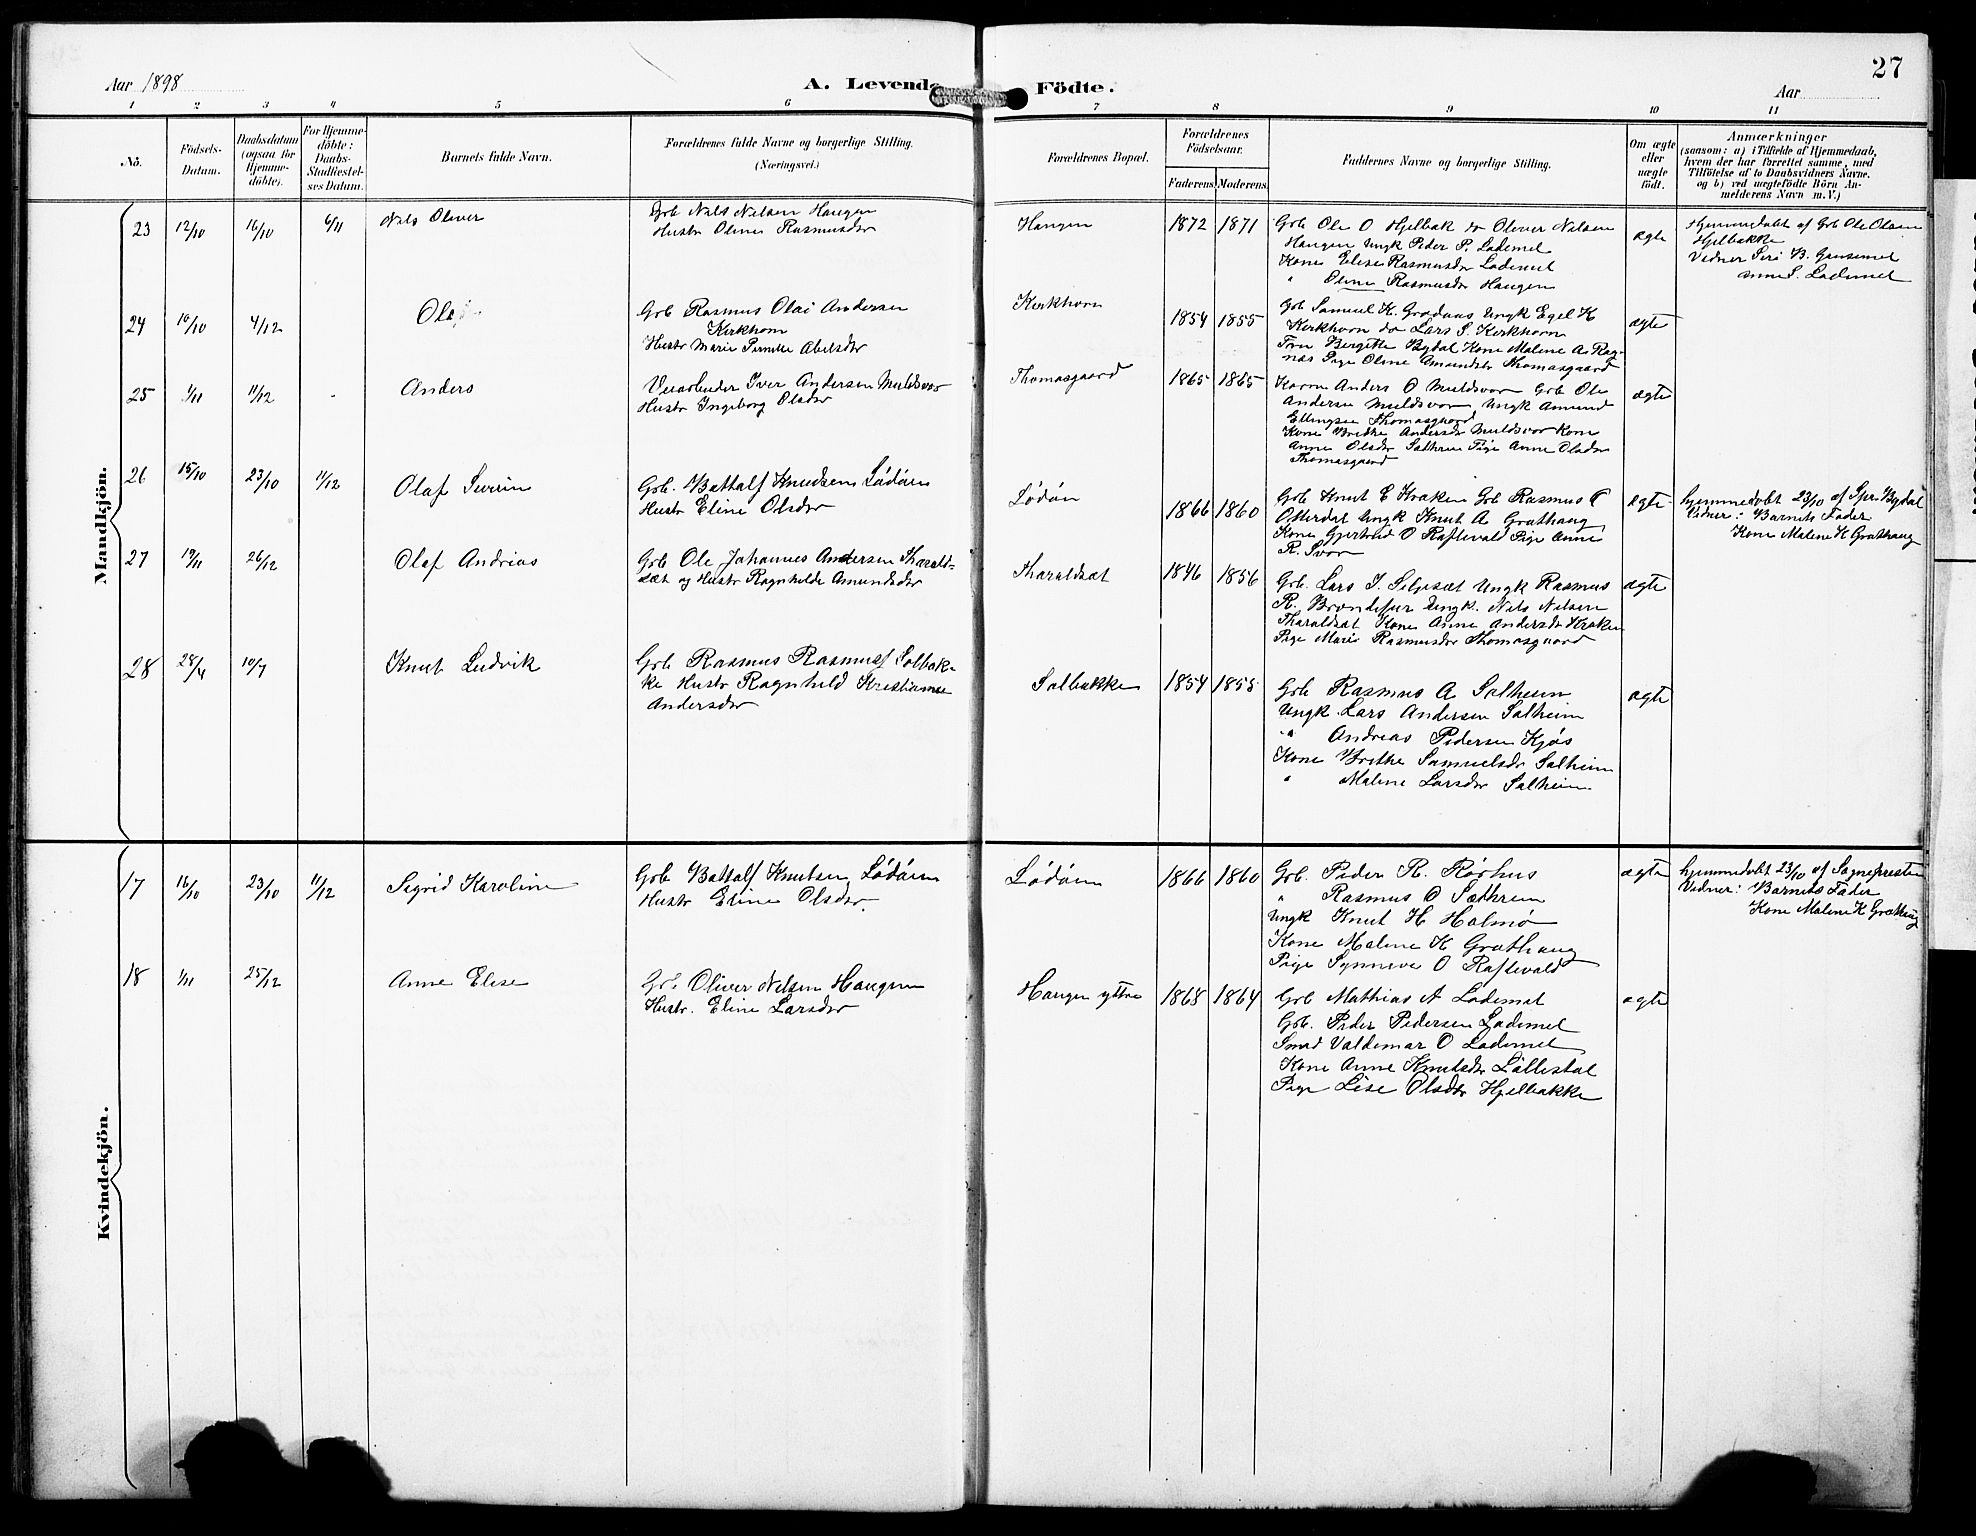 27
Aar 1898
A. Levende Födte.
Aar
1 2 3 4 5 6 7 8 9 10 11
Nö.
Födsels-
Datum.
Daabsdatum
(ogsaa for
Hjemme-
döbte).
For Hjemme-
döbte:
Daabs-
Stadfæstel-
ses Datum.
Barnets fulde Navn.
Forældrenes fulde Navne og borgerlige Stilling.
(Næringsvei.)
Forældrenes Bopæl.
Forældrenes
Födselsaar.
Faderens. Moderens.
Faddernes Navne og borgerlige Stilling.
Om ægte
eller
uægte
født.
Anmærkninger
(saasom: a) i Tilfælde af Hjemmedaab,
hvem der har forrettet samme, med
Tilföielse af to Daabsvidners Navne.
og b) ved uægtefödte Börn An-
melderens Navn m. V.)
Mandkjön.
23 12/10 16/10 6/11
Nils Oliver
Grb Nils Nilsen Haugen
Hustr Oline Rasmusdtr
Haugen
1872 1871
Grb Ole O Hjelbak do Oliver Nilsen
Haugen Ungk Peder P. Lademel
Kone Elise Rasmusdtr Lademel
" Oline Rasmusdtr Haugen
ægte
Hjemmedøbt af Grb Ole Olsen
Hjelbakke
Vidner Siri B.
S. Lademel
24 16/10 4/12
Grb Rasmus Olai Andersen
Kirkhorn
Hustr Marie Pernille Abelsdtr
Kirkhorn
1854 1855
Grb Samuel K. Ungk Egel K
Kirkhorn do Lars S. Kirkhorn
Fru Bergitte Bydal Kone Malene A. Rag-
næs Pige Oline Amundsdtr Thomasgaard
ægte
25 1/11 11/12 -
Anders
Veiarbeider Iver Andersen Muldsvor
Hustr Ingeborg Olsdtr
Thomasgaard
1865 1865
Anders O Muldsvor Grb Ole
Andersen Muldsvor Ungk Amund
Ellingsen Thomasgaard
Kone Brithe Andersdtr Muldsvor Kone
Anne Olsdtr Sæthren Pige Anne Olsdtr
Thomasgaard
ægte
26 15/10 23/10 11/12
Olaf Severin
Grb. Battalf Knudsen Lødøen
Hustr Eline Olsdtr
Lødøen
1866 1860
Grb Knut E Kraken Grb Rasmus O
Otterdal Ungk Knut A Grathaug
Kone Gjertrud O Raftevald Pige Anne
R. Svor
ægte
hjemmedøbt 23/10 af Spr. Bydal
Vidner: Barnets Fader
Kone Malene K Grathaug
27 19/11 26/12
Olaf Andrias
Grb Ole Johannes Andersen Tharald-
sæt og Hustr Ragnhilde Amundsdtr
Tharaldsæt
1846 1856
Grb. Lars J. Seljesæt Ungk Rasmus
R. Ungk. Nils Nilsen
Tharaldsæt Kone Anne Andersdtr Kraken
Pige Marie Rasmusdtr Thomasgaard
ægte
28 28/4 10/7
Knut Ludvik
Grb Rasmus Rasmuss Solbak-
ke Hustr Ragnhild Kristianne
Andersdtr
Solbakke
1854 1855
Grb Rasmus A Solheim
Ungk Lars Andersen Solheim
" Andreas Pedersen Kjøs
Kone Brithe Samuelsdtr Solheim
" Malene Larsdtr Solheim
ægte
Kvindekjön.
17 16/10 23/10 11/12
Sigrid Karoline
Grb Battalf Knutsen Lødøen
Hustr Eline Olsdtr
Lødøen
1866 1860
Grb. Peder R. Rørhus
" Rasmus O Sæthren
Ungk Knut H Holmø
Kone Malene K Grathaug
Pige Synneve O Raftevald
ægte
hjemmedøbt 23/10 af Sognepresten
Vidner: Barnets Fader
Kone Malene K Grathaug
18 1/11 25/12
Anne Elise
Grb Oliver Nilsen Haugen
Hustr. Eline Larsdtr
Haugen yttre
1868 1864
Grb Matthias A Lademel
Grb. Peder Pedersen Lademel
Smed Valdemar O Lademel
Kone Anne Knutsdtr Lillestøl
Pige Lise Olsdtr Hjelbakke
ægte